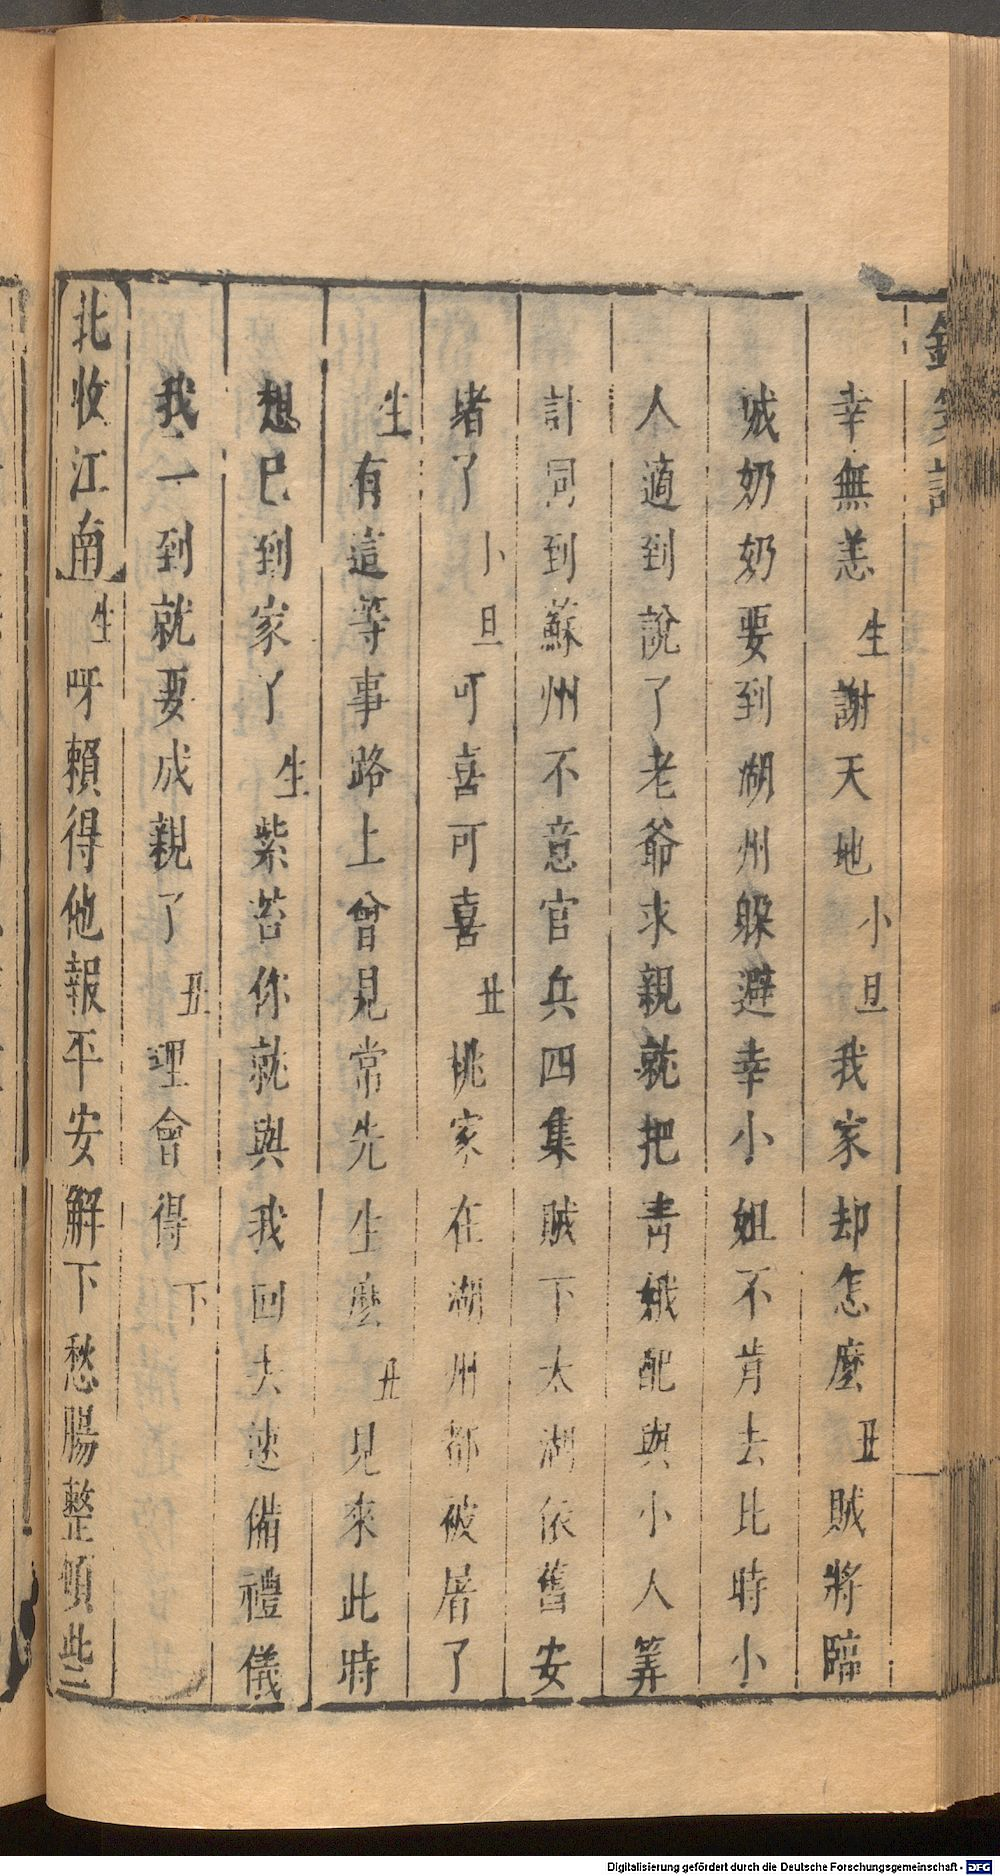 幸無恙生謝天地小旦我家却怎麼丑賊將臨
城奶奶要到湖州躲避幸小姐不肯去比時小
人適到說了老爺求親就把青娥配與小人筭
計同到蘇州不意官兵四集賊下太湖依舊安
堵了小旦可喜可喜丑桃家在湖州都被屠了
生有這等事路上曾見常先生麼丑見來此時
想已到家了生紫苔你就與我回去速備禮儀
我一到就要成親了丑理會得下
北收江南生呀賴得他報平安解下愁腸整頓些
Digitalisierung gefördert durch die Deutsche Forschungsgemeinschaft - DFG